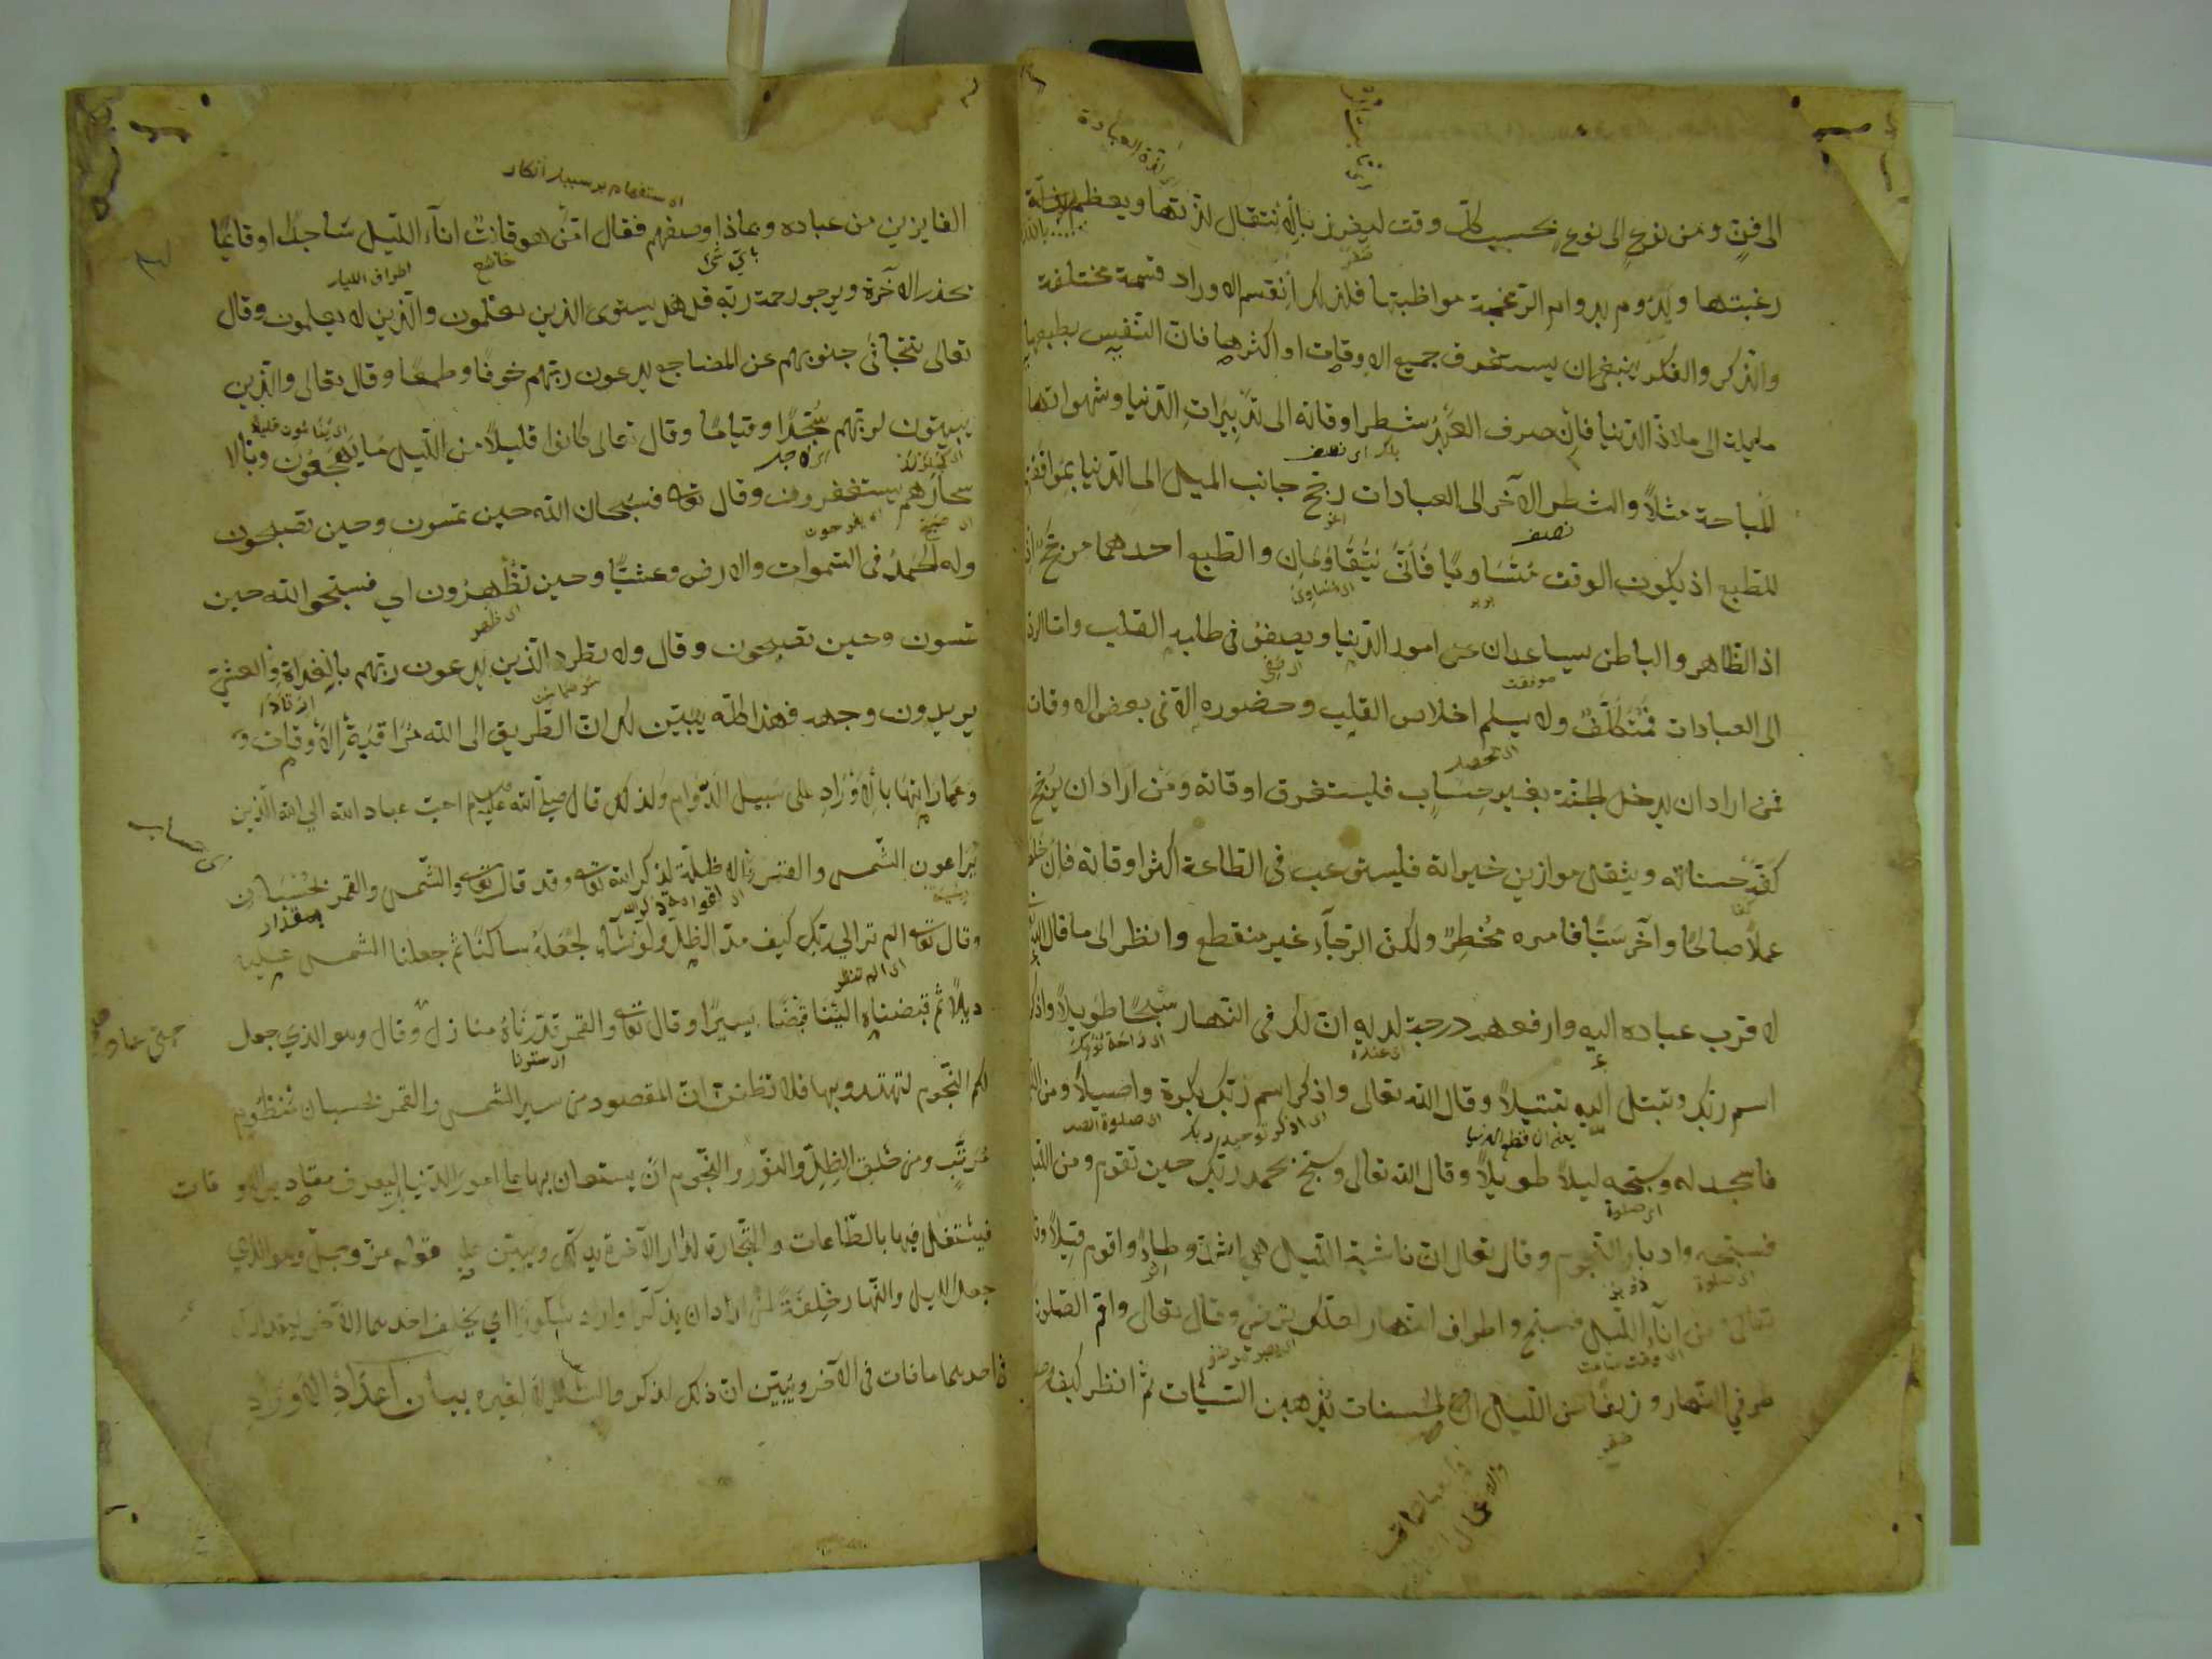 الى فن ومن نوع الى نوع بحسب كل وقت ليغرز بالانتقال لذتها ويعظم
رغبتها ويدوم بدوام الرغبة مواظبتها فلذلك انقسم الاوراد قسمة مختلفة
والذكر والفكر ينبغي ان يستغرق جميع الاوقات او اكثرها فان النفس بطبعها
مايلة الى ملاذ الدنيا فان صرف العبد شطر اوقاته الى تدبيرات الدنيا وشهواتها
المباحة مثلا والشطر الآخر الى العبادات رجح جانب الميل الى الدنيا بموافقتها
للطبع اذ يكون الوقت متساويا فأنى يتقاومان والطبع احدهما مرجح
اذ الظاهر والباطن يساعدان على امور الدنيا ويصفو في طلبه القلب واما الرد
الى العبادات فمتكلف ولا يسلم اخلاص القلب وحضوره الا في بعض الاوقات
فمن اراد ان يدخل الجنة بغير حساب فليستغرق اوقاته ومن اراد ان يرجح
كفة حسناته ويثقل موازين خيراته فليستوعب في الطاعة اكثر اوقاته فان خلط
عملا صالحا وآخر سيئا فامره مخطر ولكن الرجاء غير منقطع وانظر الى ما قال الله
لاقرب عباده اليه وارفعهم درجة لديه ان لك في النهار سبحا طويلا واذكر
اسم ربك وتبتل اليه تبتيلا وقال الله تعالى واذكر اسم ربك بكرة واصيلا ومن الليل
فاسجد له وسبحه ليلا طويلا وقال الله تعالى وسبح بحمد ربك حين تقوم ومن الليل
فسبحه وادبار النجوم وقال تعالى ان ناشية الليل هي اشد وطاء واقوم قيلا
تعالى ومن آناء الليل فسبح واطراف النهار لعلك ترضى وقال تعالى واقم الصلوة
طرفي النهار وزلفا من الليل ان الحسنات يذهبن السيئات ثم انظر كيف وصف
الاستفهام بر سبيل انكار
الفايزين من عباده وبماذا وصفهم فقال امن هو قانت آناء الليل ساجدا وقائما
يحذر الآخرة ويرجو رحمة ربه قل هل يستوى الذين يعلمون والذين لا يعلمون وقال
تعالى تتجافى جنوبهم عن المضاجع يدعون ربهم خوفا وطمعا وقال تعالى والذين
يبيتون لربهم سجدا وقياما وقال تعالى كانوا قليلا من الليل ما يهجعون وبالا
سحار هم يستغفرون وقال تعالى فسبحان الله حين تمسون وحين تصبحون
وله الحمد في السموات والارض وعشيا وحين تظهرون اي فسبحوا الله حين
تمسون وحين تصبحون وقال ولا تطرد الذين يدعون ربهم بالغداة والعشي
يريدون وجهه فهذا كله يبين لك ان الطريق الى الله مراقبة الاوقات و
وعمارتها بالاوراد على سبيل الدوام ولذلك قال صلى الله عليه وسلم احب عباد الله الى الله الذين
يراعون الشمس والقمر والاظلة لذكر الله تعالى وقد قال تعالى والشمس والقمر بحسبان
وقال تعالى الم تر الى ربك كيف مد الظل ولو شاء لجعله ساكنا ثم جعلنا الشمس عليه
دليلا ثم قبضناه الينا قبضا يسيرا وقال تعالى والقمر قدرناه منازل وقال وهو الذي جعل
لكم النجوم لتهتدوا بها فلا تظنن ان المقصود من سير الشمس والقمر بحسبان منظوم
مرتب ومن خلق الظل والنور والنجوم ان يستعان بها على امور الدنيا ليعرف مقادير الاوقات
فيشتغل فيها بالطاعات والتجارة لدار الآخرة يدلك ويبين عليه قوله عز وجل وهو الذي
جعل الليل والنهار خلفة لمن اراد ان يذكر او اراد شكورا اي يخلف احدهما الآخر ليتدارك
في احدهما ما فات في الآخر ويبين ان ذلك للذكر والشكر لا لغيره بيان اعداد الاوراد